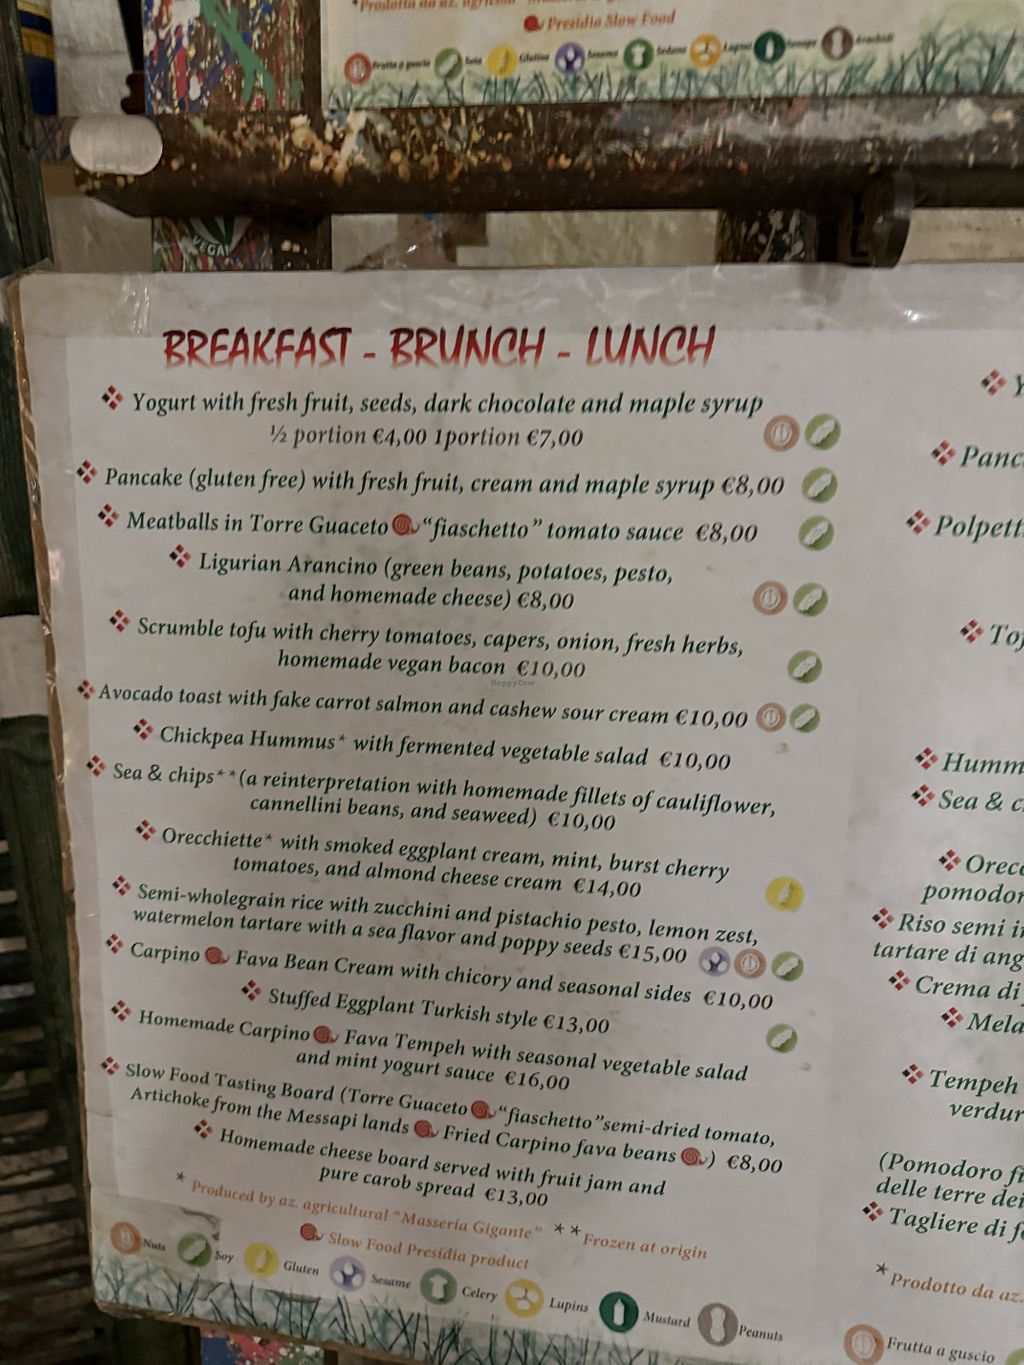 *Prodotto da az. agricola
Presidio Slow Food
Frutta a guscio Soia Glutine Sesamo Sedano Lupini Senape Arachidi
VEGAN
BREAKFAST - BRUNCH - LUNCH
Yogurt with fresh fruit, seeds, dark chocolate and maple syrup
½ portion €4,00 1portion €7,00
Pancake (gluten free) with fresh fruit, cream and maple syrup €8,00
Meatballs in Torre Guaceto “fiaschetto” tomato sauce €8,00
Ligurian Arancino (green beans, potatoes, pesto,
and homemade cheese) €8,00
Scrumble tofu with cherry tomatoes, capers, onion, fresh herbs,
homemade vegan bacon €10,00
HappyCow
Avocado toast with fake carrot salmon and cashew sour cream €10,00
Chickpea Hummus* with fermented vegetable salad €10,00
Sea & chips**(a reinterpretation with homemade fillets of cauliflower,
cannellini beans, and seaweed) €10,00
Orecchiette* with smoked eggplant cream, mint, burst cherry
tomatoes, and almond cheese cream €14,00
Semi-wholegrain rice with zucchini and pistachio pesto, lemon zest,
watermelon tartare with a sea flavor and poppy seeds €15,00
Carpino Fava Bean Cream with chicory and seasonal sides €10,00
Stuffed Eggplant Turkish style €13,00
Homemade Carpino Fava Tempeh with seasonal vegetable salad
and mint yogurt sauce €16,00
Slow Food Tasting Board (Torre Guaceto “fiaschetto”semi-dried tomato,
Artichoke from the Messapi lands Fried Carpino fava beans ) €8,00
Homemade cheese board served with fruit jam and
pure carob spread €13,00
* Produced by az. agricultural “Masseria Gigante” **Frozen at origin
Slow Food Presidia product
Nuts Soy Gluten Sesame Celery Lupins Mustard Peanuts
Y
Panc
Polpett
Tof
Humm
Sea & c
Orecc
pomodor
Riso semi in
tartare di ang
Crema di
Mela
Tempeh
verdur
(Pomodoro fi
delle terre dei
Tagliere di f
*Prodotto da az.
Frutta a guscio